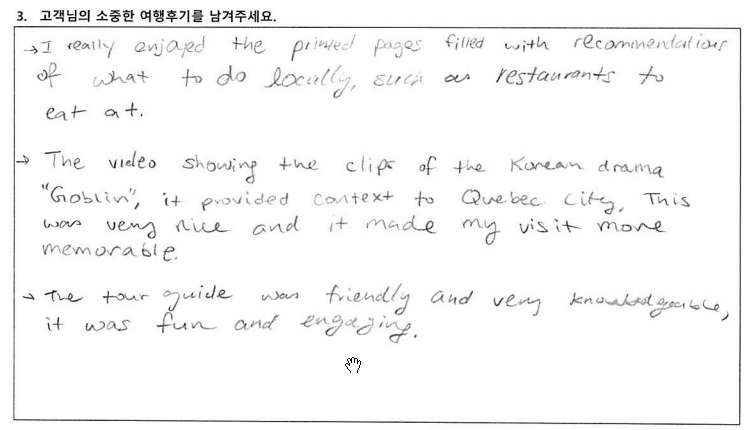 3. 고객님의 소중한 여행후기를 남겨주세요.
→ I really enjoyed the printed pages filled with recommendations
of what to do locally, such as restaurants to
eat at.
→ The video showing the clips of the Korean drama
"Goblin", it provided context to Quebec City, This
was very nice and it made my visit more
memorable.
→ The tour guide was friendly and very knowledgeable,
it was fun and engaging.